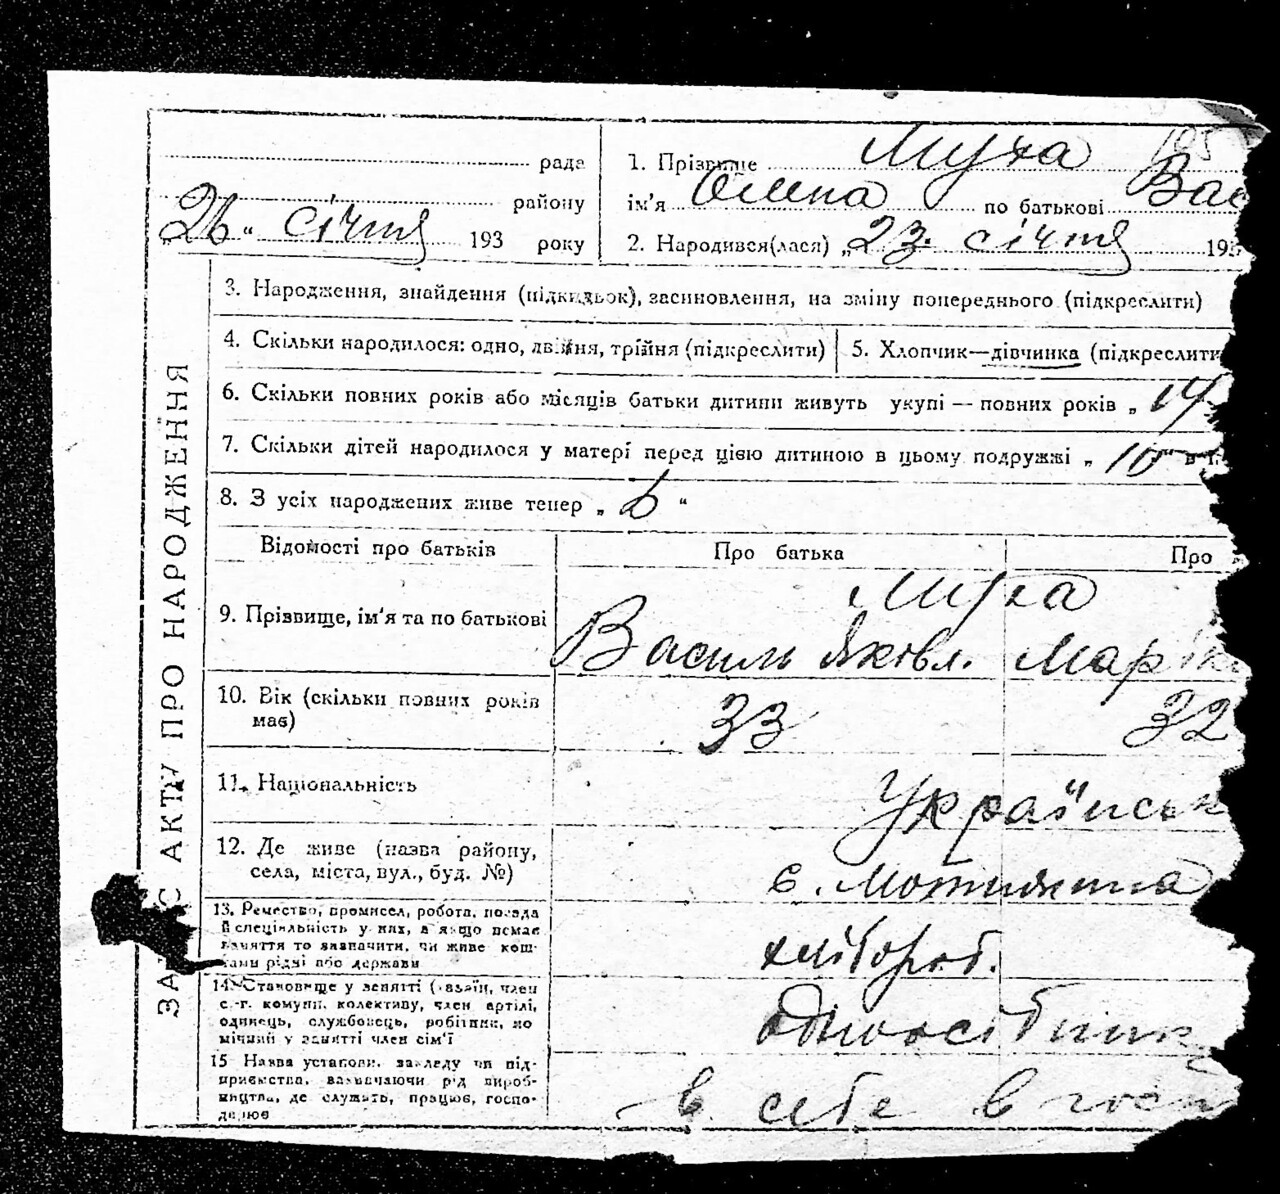 105
рада
району
"26" січня 193 року
1. Прізвище Муха
ім'я Олена по батькові Вас
2. Народився(лася) „23. січня 193
3. Народження, знайдення (підкидьок), засиновлення, на зміну попереднього (підкреслити)
4. Скільки народилося: одно, двійня, трійня (підкреслити)
5. Хлопчик—дівчинка (підкреслити
6. Скільки повних років або місяців батьки дитини живуть укупі — повних років „ 14
7. Скільки дітей народилося у матері перед цією дитиною в цьому подружжі „ 10 " в т.
8. З усіх народжених живе тепер „ 6 "
Відомості про батьків
Про батька
Про
9. Прізвище, ім'я та по батькові
Муха
Василь Яковл.
Марі
10. Вік (скільки повних років
має)
33
32
11. Національність
Українськ
12. Де живе (назва району,
села, міста, вул., буд. №)
с.
13. Ремество, промисел, робота, посада
й спеціяльність у них, а якщо немає
заняття то зазначити, чи живе кош-
тами рідні або держави
хлібороб.
14. Становище у занятті (хазяїн, член
с.-г. комуни, колективу, член артілі,
одинець, службовець, робітник, по
мічний у занятті член сім'ї
одноосібник
15 Назва установи, закладу чи під-
приємства, зазначаючи рід вироб-
ництва, де служить, працює, госпо-
дарює
в себе в госп
ЗА АКТУ ПРО НАРОДЖЕННЯ